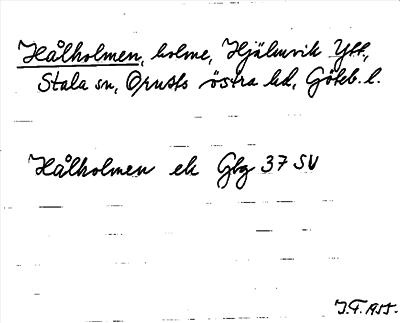 Hålholmen, holme, Hjälmvik Ytt.,
Stala sn, Orusts östra hd, Göteb. l.
Hålholmen ek Gbg 37 SV
J.F. 1955.